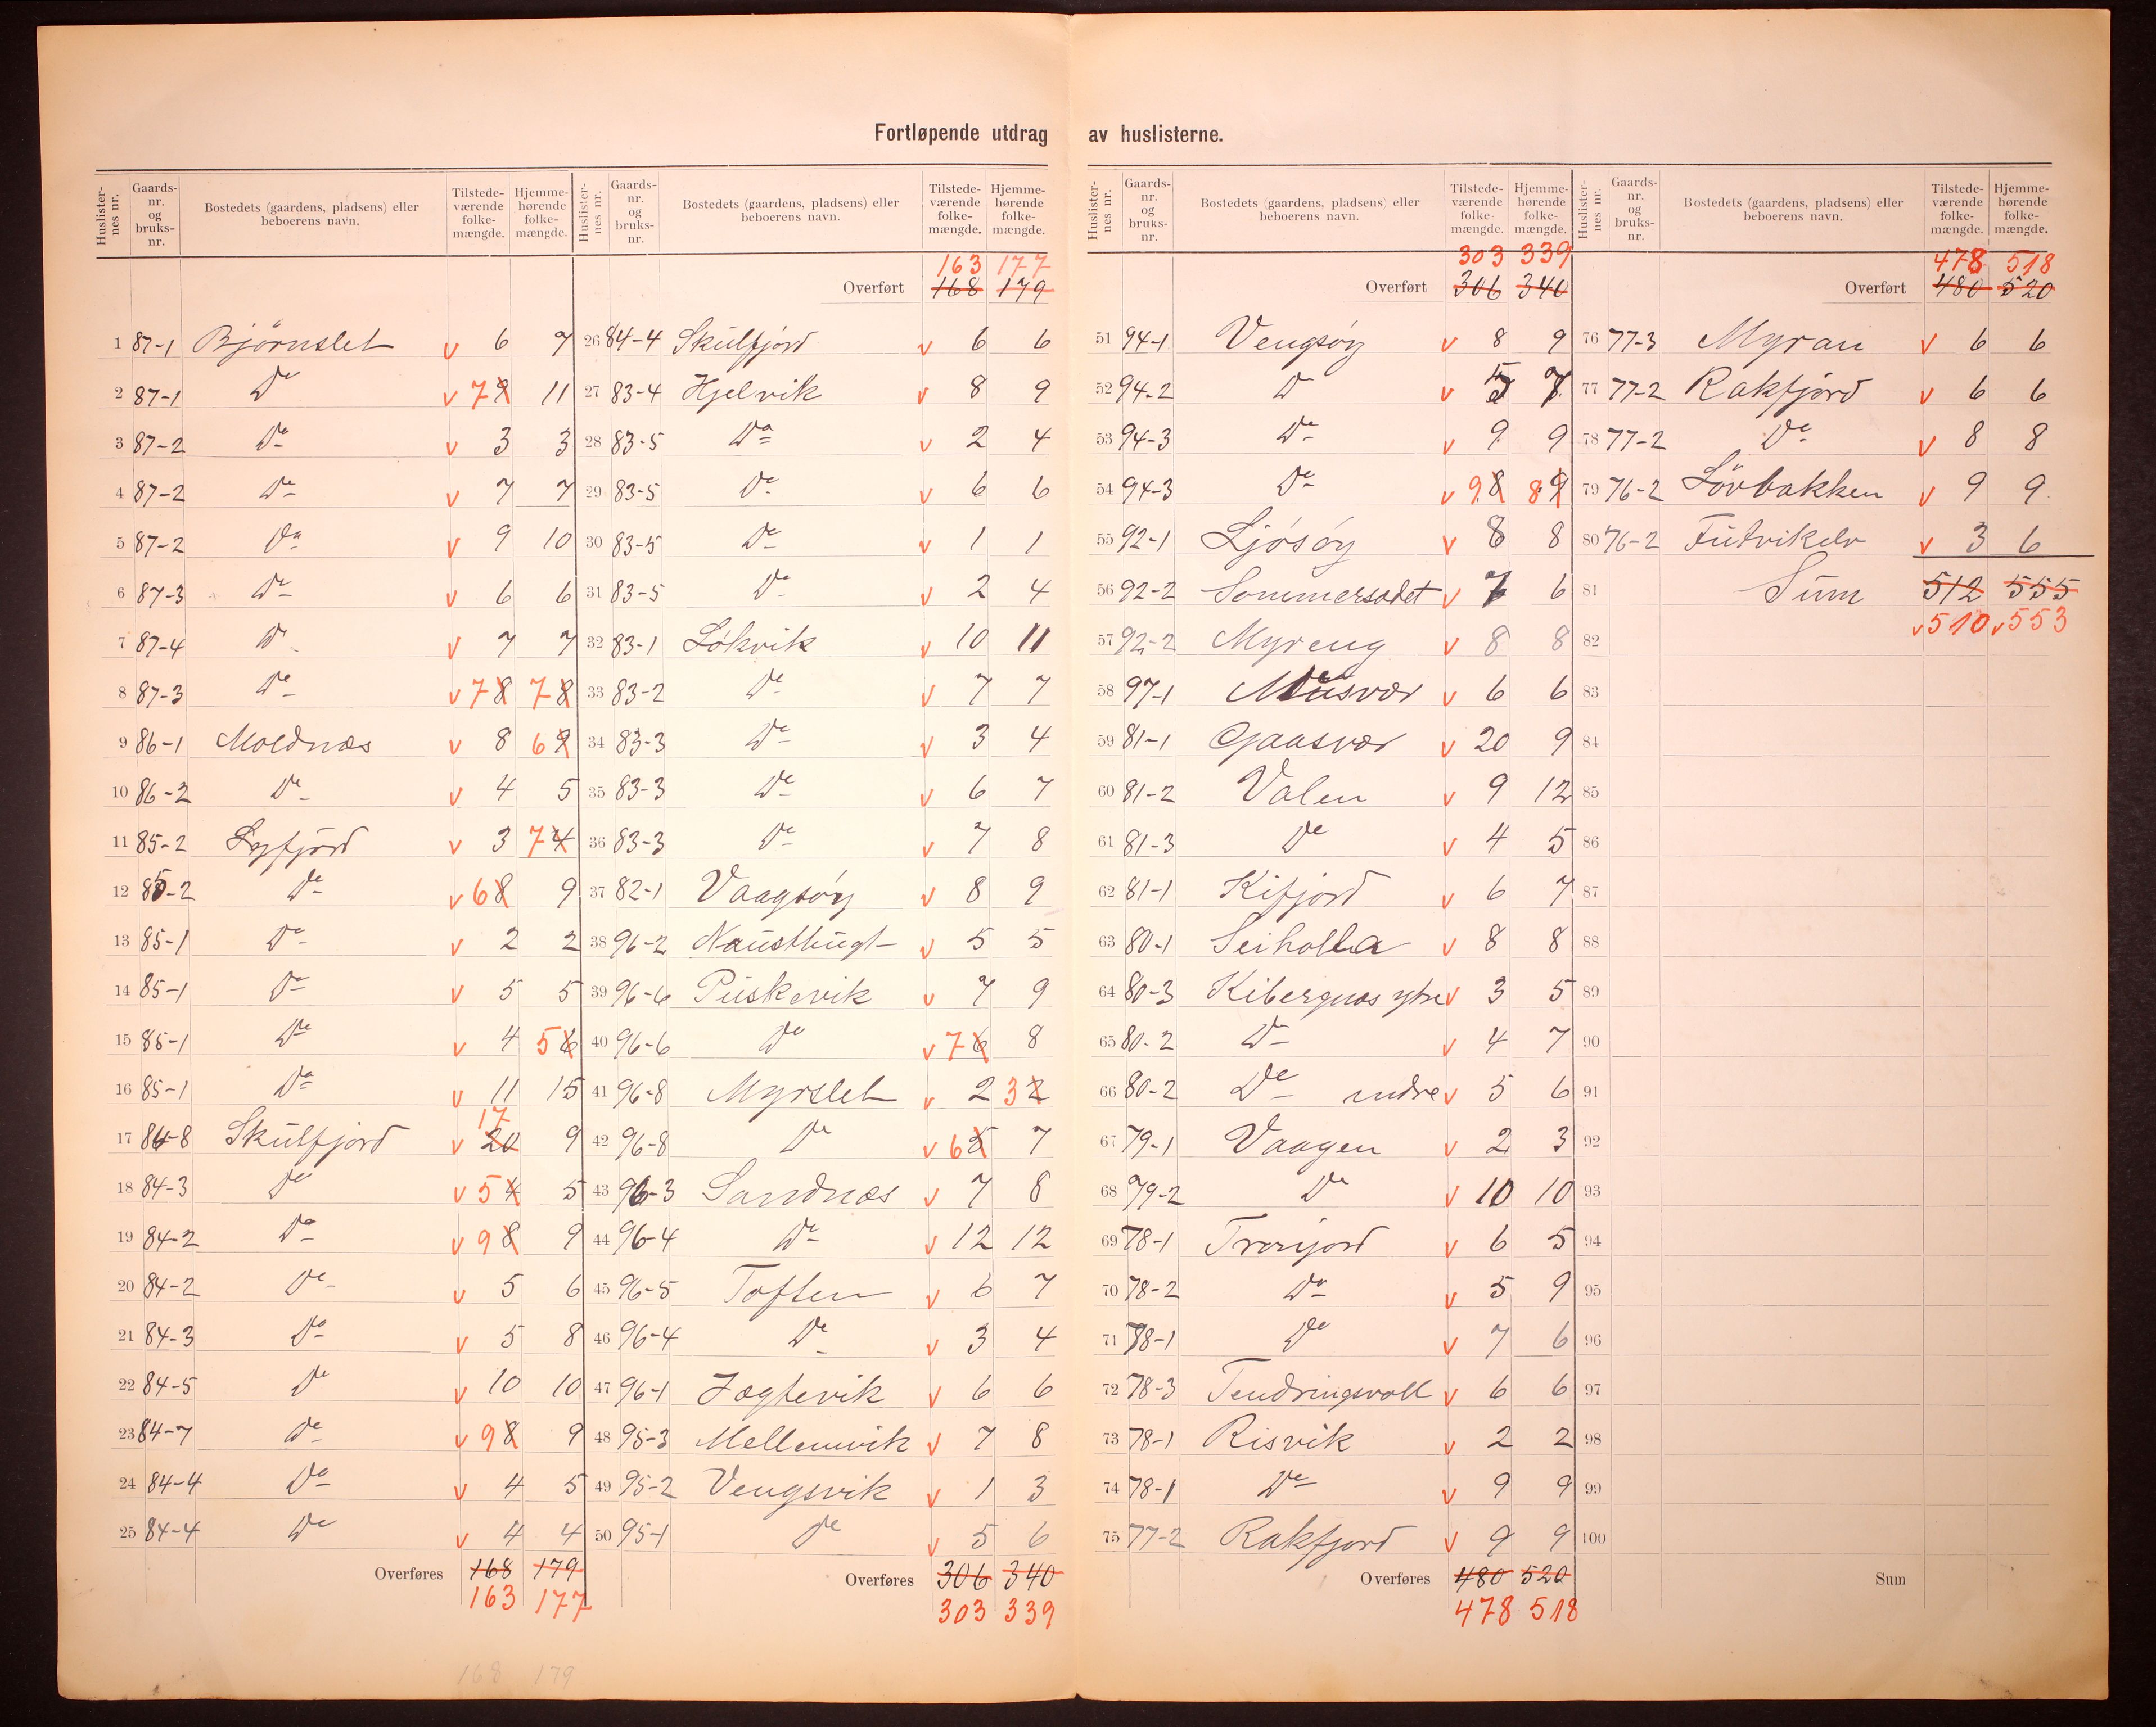 Fortløpende utdrag av huslisterne.
Huslisternes nr. Gaards-nr. og bruks-nr. Bostedets (gaardens, pladsens) eller beboerens navn. Tilstedeværende folkemængde. Hjemmehørende folkemængde.
1 87-1 Bjørnslet v 6 7
2 87-1 Do v 7 9 11
3 87-2 Do v 3 3
4 87-2 Do v 7 7
5 87-2 Do v 9 10
6 87-3 Do v 6 6
7 87-4 Do v 7 7
8 87-3 Do v 7 8 7 8
9 86-1 Moldnæs v 8 6 9
10 86-2 Do v 4 5
11 85-2 Lyfjord v 3 7 4
12 85-2 Do v 6 8 9
13 85-1 Do v 2 2
14 85-1 Do v 5 5
15 85-1 Do v 4 5 6
16 85-1 Do v 11 15
17 84-8 Skulfjord v 17 20 9
18 84-3 Do v 5 4 5
19 84-2 Do v 9 8 9
20 84-2 Do v 5 6
21 84-3 Do v 5 8
22 84-5 Do v 10 10
23 84-7 Do v 9 8 9
24 84-4 Do v 4 5
25 84-4 Do v 4 4
Overføres 168 179
163 177
168 179
Huslisternes nr. Gaards-nr. og bruks-nr. Bostedets (gaardens, pladsens) eller beboerens navn. Tilstedeværende folkemængde. Hjemmehørende folkemængde.
163 177
Overført 168 179
26 84-4 Skulfjord v 6 6
27 83-4 Hjelvik v 8 9
28 83-5 Do v 2 4
29 83-5 Do v 6 6
30 83-5 Do v 1 1
31 83-5 Do v 2 4
32 83-1 Løkvik v 10 11
33 83-2 Do v 7 7
34 83-3 Do v 3 4
35 83-3 Do v 6 7
36 83-3 Do v 7 8
37 82-1 Vaagsøy v 8 9
38 96-2 Nausthugt v 5 5
39 96-6 Puskevik v 7 9
40 96-6 Do v 7 6 8
41 96-8 Myrslet v 2 3 2
42 96-8 Do v 6 5 7
43 96-3 Sandnæs v 7 8
44 96-4 Do v 12 12
45 96-5 Toften v 6 7
46 96-4 Do v 3 4
47 96-1 Jægtevik v 6 6
48 95-3 Mellemvik v 7 8
49 95-2 Vengsvik v 1 3
50 95-1 Do v 5 6
Overføres 306 340
303 339
Huslisternes nr. Gaards-nr. og bruks-nr. Bostedets (gaardens, pladsens) eller beboerens navn. Tilstedeværende folkemængde. Hjemmehørende folkemængde.
303 339
Overført 306 340
51 94-1 Vengsøy v 8 9
52 94-2 Do v 5 7
53 94-3 Do v 9 9
54 94-3 Do v 9 8 8 9
55 92-1 Ljøsøy v 8 8
56 92-2 Sommersædet v 7 6
57 92-2 Myreng v 8 8
58 97-1 Musvær v 6 6
59 81-1 Gaasvær v 20 9
60 81-2 Valen v 9 12
61 81-3 Do v 4 5
62 81-1 Kifjord v 6 7
63 80-1 Seiholla v 8 8
64 80-3 Kibergnæs ytre v 3 5
65 80-2 Do v 4 7
66 80-2 Do indre v 5 6
67 79-1 Vaagen v 2 3
68 79-2 Do v 10 10
69 78-1 v 6 5
70 78-2 Do v 5 9
71 78-1 Do v 7 6
72 78-3 Tendringsvoll v 6 6
73 78-1 Risvik v 2 2
74 78-1 Do v 9 9
75 77-2 Rakfjord v 9 9
Overføres 480 520
478 518
Huslisternes nr. Gaards-nr. og bruks-nr. Bostedets (gaardens, pladsens) eller beboerens navn. Tilstedeværende folkemængde. Hjemmehørende folkemængde.
478 518
Overført 480 520
76 77-3 Myran v 6 6
77 77-2 Rakfjord v 6 6
78 77-2 Do v 8 8
79 76-2 Lövbakken v 9 9
80 76-2 Futrikelv v 3 6
81 Sum 512 555
82 v 510 v 553
83
84
85
86
87
88
89
90
91
92
93
94
95
96
97
98
99
100
Sum